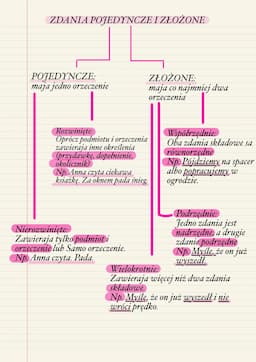 ZDANIA POJEDYNCZE I ZŁOŻONE
POJEDYNCZE:
maja jedno orzeczenie
ZŁOŻONE:
maja co najmniej dwa
orzeczenia
Rozwinięte:
Oprócz podmiotu i orzeczenia
zawieraja inne określenia
(przydawkę, dopełnienie,
okolicznik)
Np. Anna czyta ciekawa
ksiażkę. Za oknem pada śnieg.
Współrzędnie:
Oba zdania składowe sa
równorzędne
Np. Pojdziemy na spacer
albo popracujemy w
ogrodzie.
Nierozwinięte:
Zawieraja tylko podmiot i
orzeczenie lub Samo orzeczenie.
Np. Anna czyta. Pada.
Podrzędnie:
Jedno zdania jest
nadrzędne a drugie
zdanie podrzędne
Np. Myślę, że on już
wyszedł.
Wielokrotnie:
Zawieraja więcej niż dwa zdania
składowe
Np. Myślę, że on już wyszedł i nie
wróci prędko.